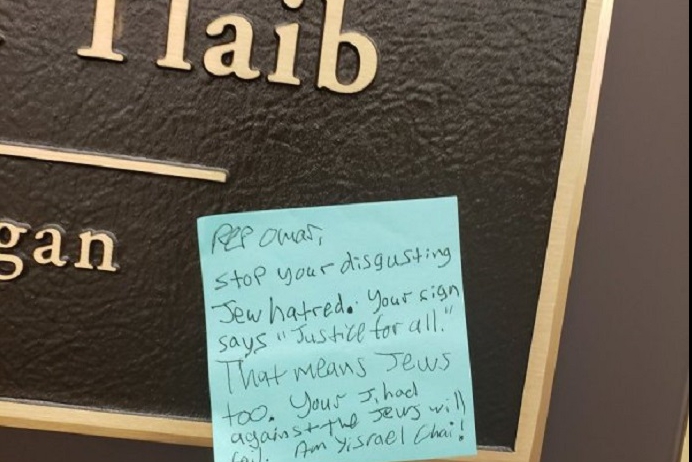 Tlaib
gan
Rep Omar,
Stop your disgusting
Jew hatred. Your sign
says "Justice for all."
That means Jews
too. Your Jihad
against the Jews will
fail. Am Yisrael Chai!